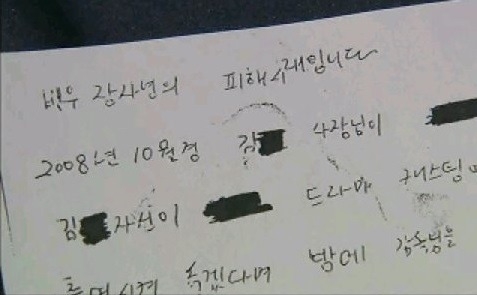 배우 장자연의 피해사례입니다
2008년 10월경 김 사장님이
김 자신이 드라마 캐스팅
밤에 감독님을